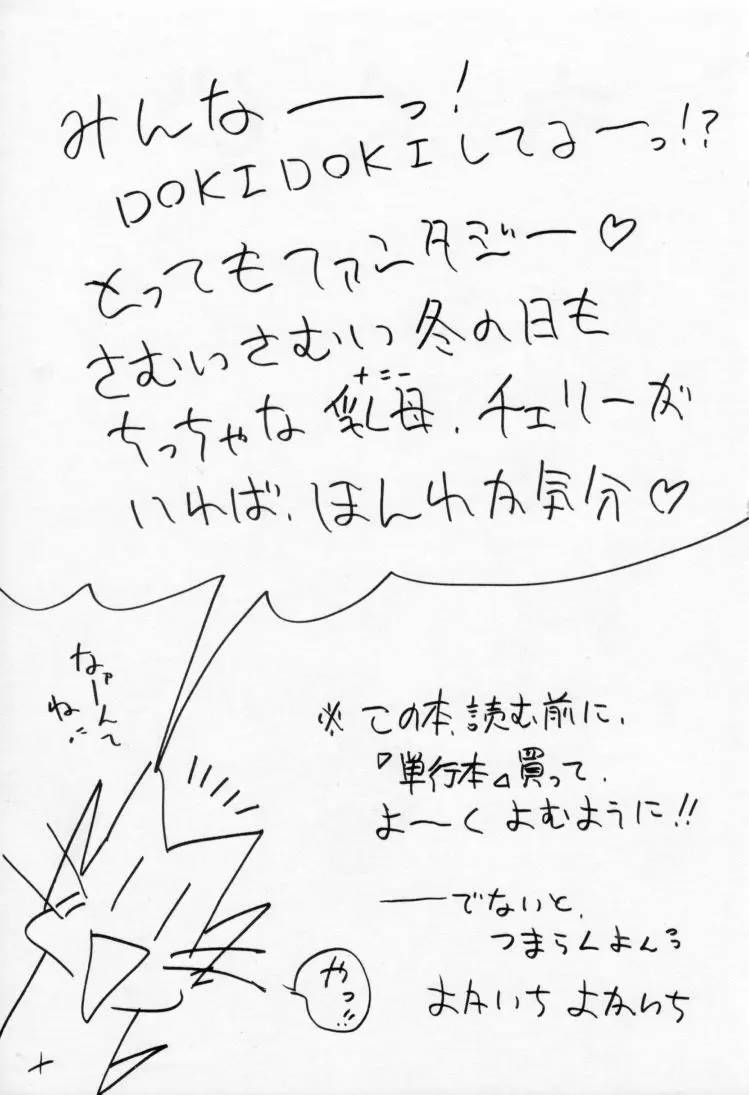 みんなーっ!
DOKIDOKIしてるーっ!?
とってもファンタジー♡
さむいさむい冬の日も
ちっちゃな乳母、チェリーが
いれば、ほんわか気分♡
なァーんて
ね
※この本、読む前に、
『単行本』買って、
よ〜くよむように!!
──でないと、
つまらんよん
よかいち よかいち
やっ!!